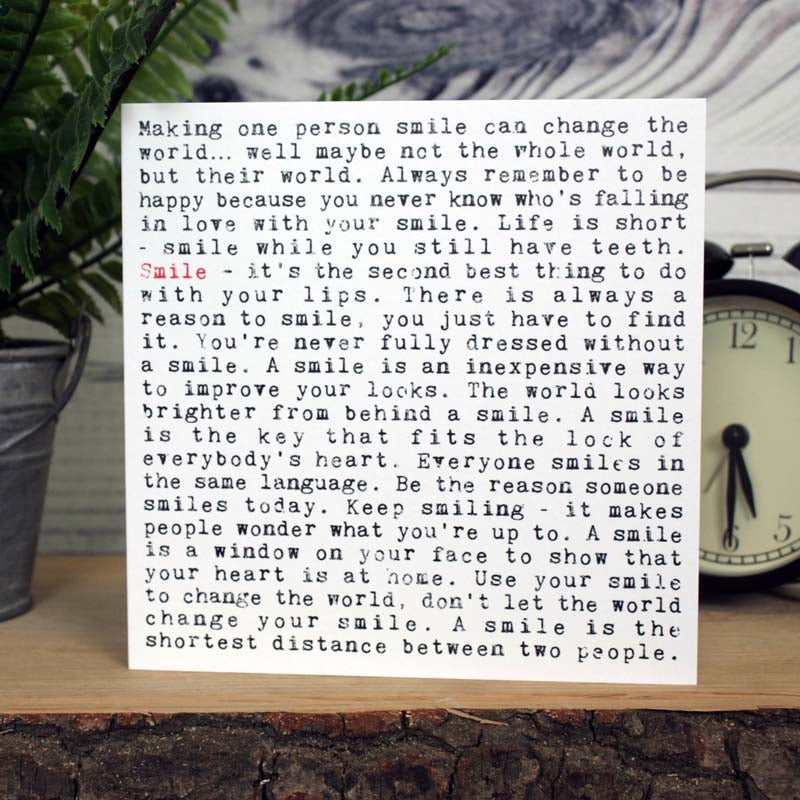 Making one person smile can change the
world... well maybe not the whole world,
but their world. Always remember to be
happy because you never know who's falling
in love with your smile. Life is short
- smile while you still have teeth.
Smile - it's the second best thing to do
with your lips. There is always a
reason to smile, you just have to find
it. You're never fully dressed without
a smile. A smile is an inexpensive way
to improve your looks. The world looks
brighter from behind a smile. A smile
is the key that fits the lock of
everybody's heart. Everyone smiles in
the same language. Be the reason someone
smiles today. Keep smiling - it makes
people wonder what you're up to. A smile
is a window on your face to show that
your heart is at home. Use your smile
to change the world, don't let the world
change your smile. A smile is the
shortest distance between two people.
12
1
5
6